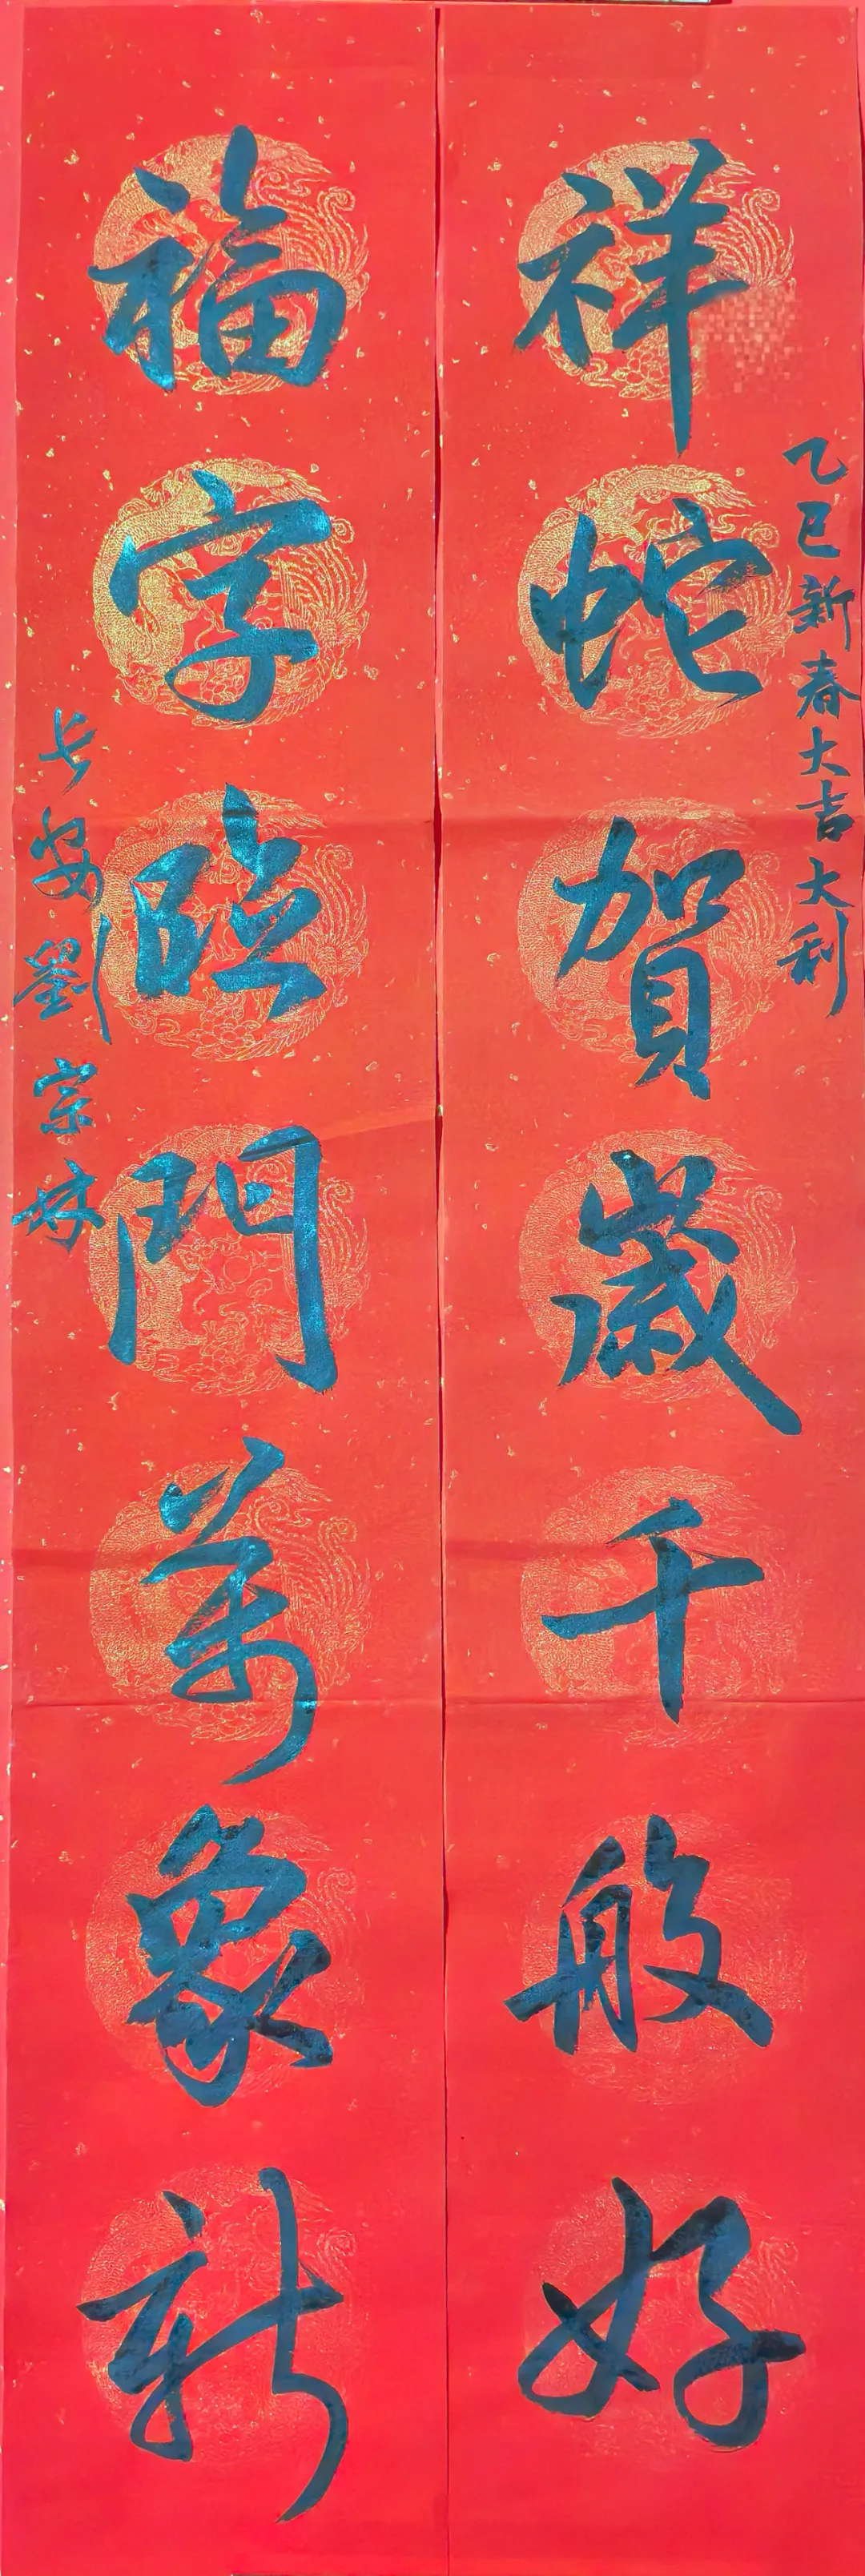 乙巳新春大吉大利
祥蛇賀歲千般好
福字臨門萬象新
长安劉宗林